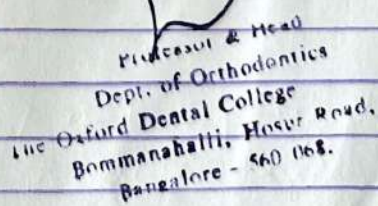 Professor & Head
Dept. of Orthodontics
The Oxford Dental College
Bommanahalli, Hosur Road,
Bangalore - 560 068.